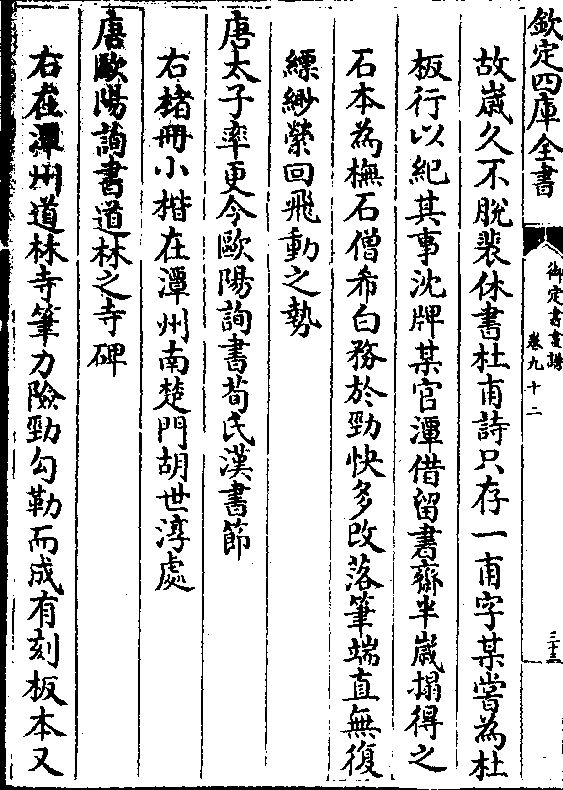 欽定四庫全書
御定書畫譜
卷九十二
三十三
故嵗久不脫裴休書杜甫詩只存一甫字某嘗為杜
板行以紀其事沈牌某官潭借留書齋半嵗搨得之
石本為橅石僧希白務於勁快多改落筆端直無復
縹緲縈回飛動之勢
唐太子率更令歐陽詢書荀氏漢書節
右楮冊小楷在潭州南楚門胡世淳處
唐歐陽詢書道林之寺碑
右在潭州道林寺筆力險勁勾勒而成有刻板本又